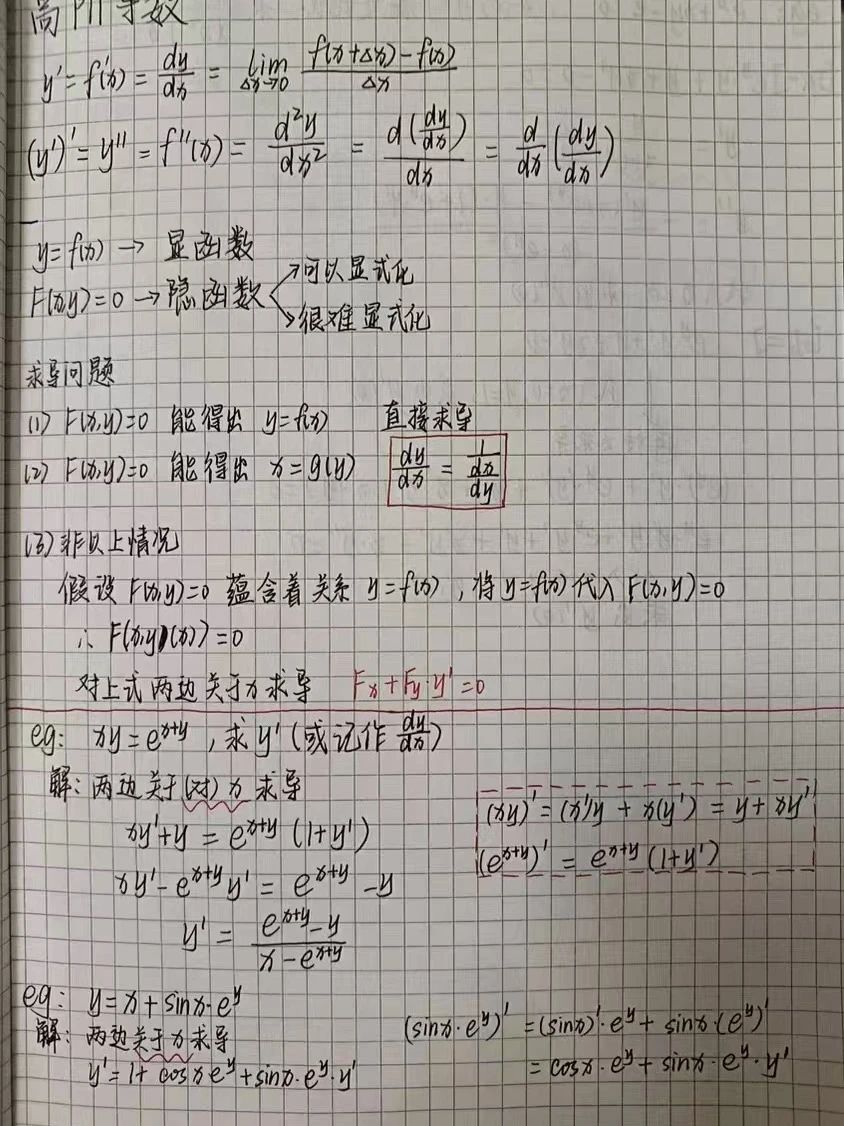 高阶导数
y' = f'(x) = dy/dx = lim Δx→0 (f(x+Δx)-f(x))/Δx
(y')' = y'' = f''(x) = d²y/dx² = d(dy/dx)/dx = d/dx (dy/dx)
y=f(x) → 显函数
F(x,y)=0 → 隐函数 ↗可以显式化
↘很难显式化
求导问题
(1) F(x,y)=0 能得出 y=f(x) 直接求导
(2) F(x,y)=0 能得出 x=g(y) dy/dx = 1/(dx/dy)
(3) 非以上情况
假设 F(x,y)=0 蕴含着关系 y=f(x),将 y=f(x) 代入 F(x,y)=0
∴ F(x,y(x))=0
对上式两边关于x求导 Fx+Fy·y'=0
eg: xy=e^(x+y),求y'(或记作 dy/dx)
解:两边关于(对)x求导
xy'+y = e^(x+y) (1+y')
xy'-e^(x+y) y' = e^(x+y) -y
y' = (e^(x+y)-y)/(x-e^(x+y))
(xy)' = (x')y + x(y') = y+xy'
(e^(x+y))' = e^(x+y) (1+y')
eg: y=x+sinx·e^y
解:两边关于x求导
y'=1+cosxe^y+sinx·e^y·y'
(sinx·e^y)' =(sinx)'·e^y+sinx·(e^y)'
=cosx·e^y+sinx·e^y·y'